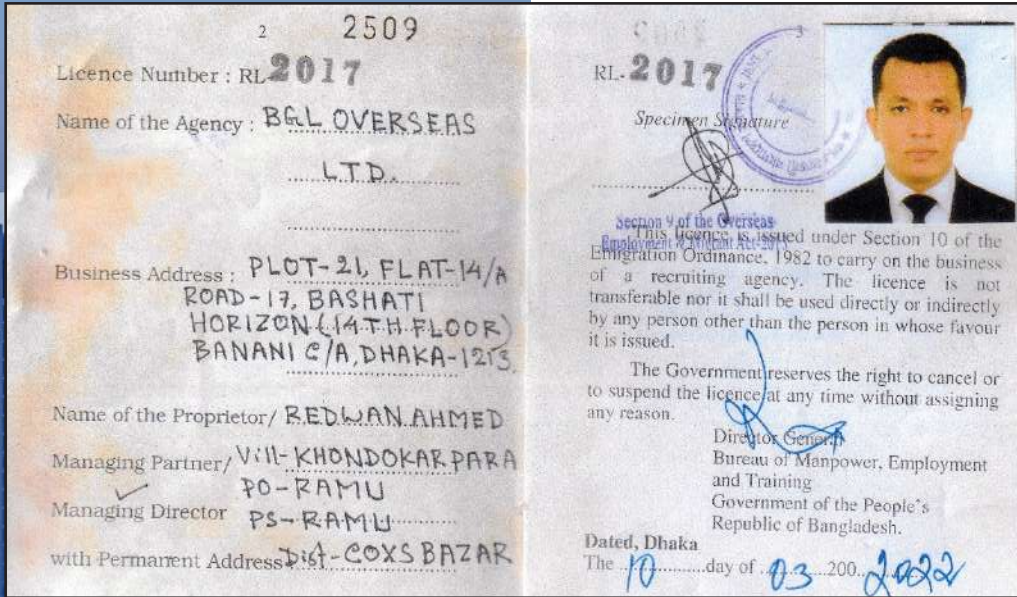 2 2509
Licence Number : RL-2017
Name of the Agency : BGL OVERSEAS
LTD.
Business Address : PLOT-21, FLAT-14/A
ROAD-17, BASHATI
HORIZON (14TH.FLOOR)
BANANI C/A, DHAKA-1213.
Name of the Proprietor/ REDWAN AHMED
Managing Partner/ Vill-KHONDOKAR PARA
PO-RAMU
Managing Director PS-RAMU
with Permanent Address Dist-COXS BAZAR
3
RL-2017
Specimen Signature
Section 9 of the Overseas
Employment & Migrant Act-
This licence is issued under Section 10 of the
Emigration Ordinance, 1982 to carry on the business
of a recruiting agency. The licence is not
transferable nor it shall be used directly or indirectly
by any person other than the person in whose favour
it is issued.
The Government reserves the right to cancel or
to suspend the licence at any time without assigning
any reason.
Director General
Bureau of Manpower, Employment
and Training
Government of the People's
Republic of Bangladesh.
Dated, Dhaka
The 10 day of 03 200 2022